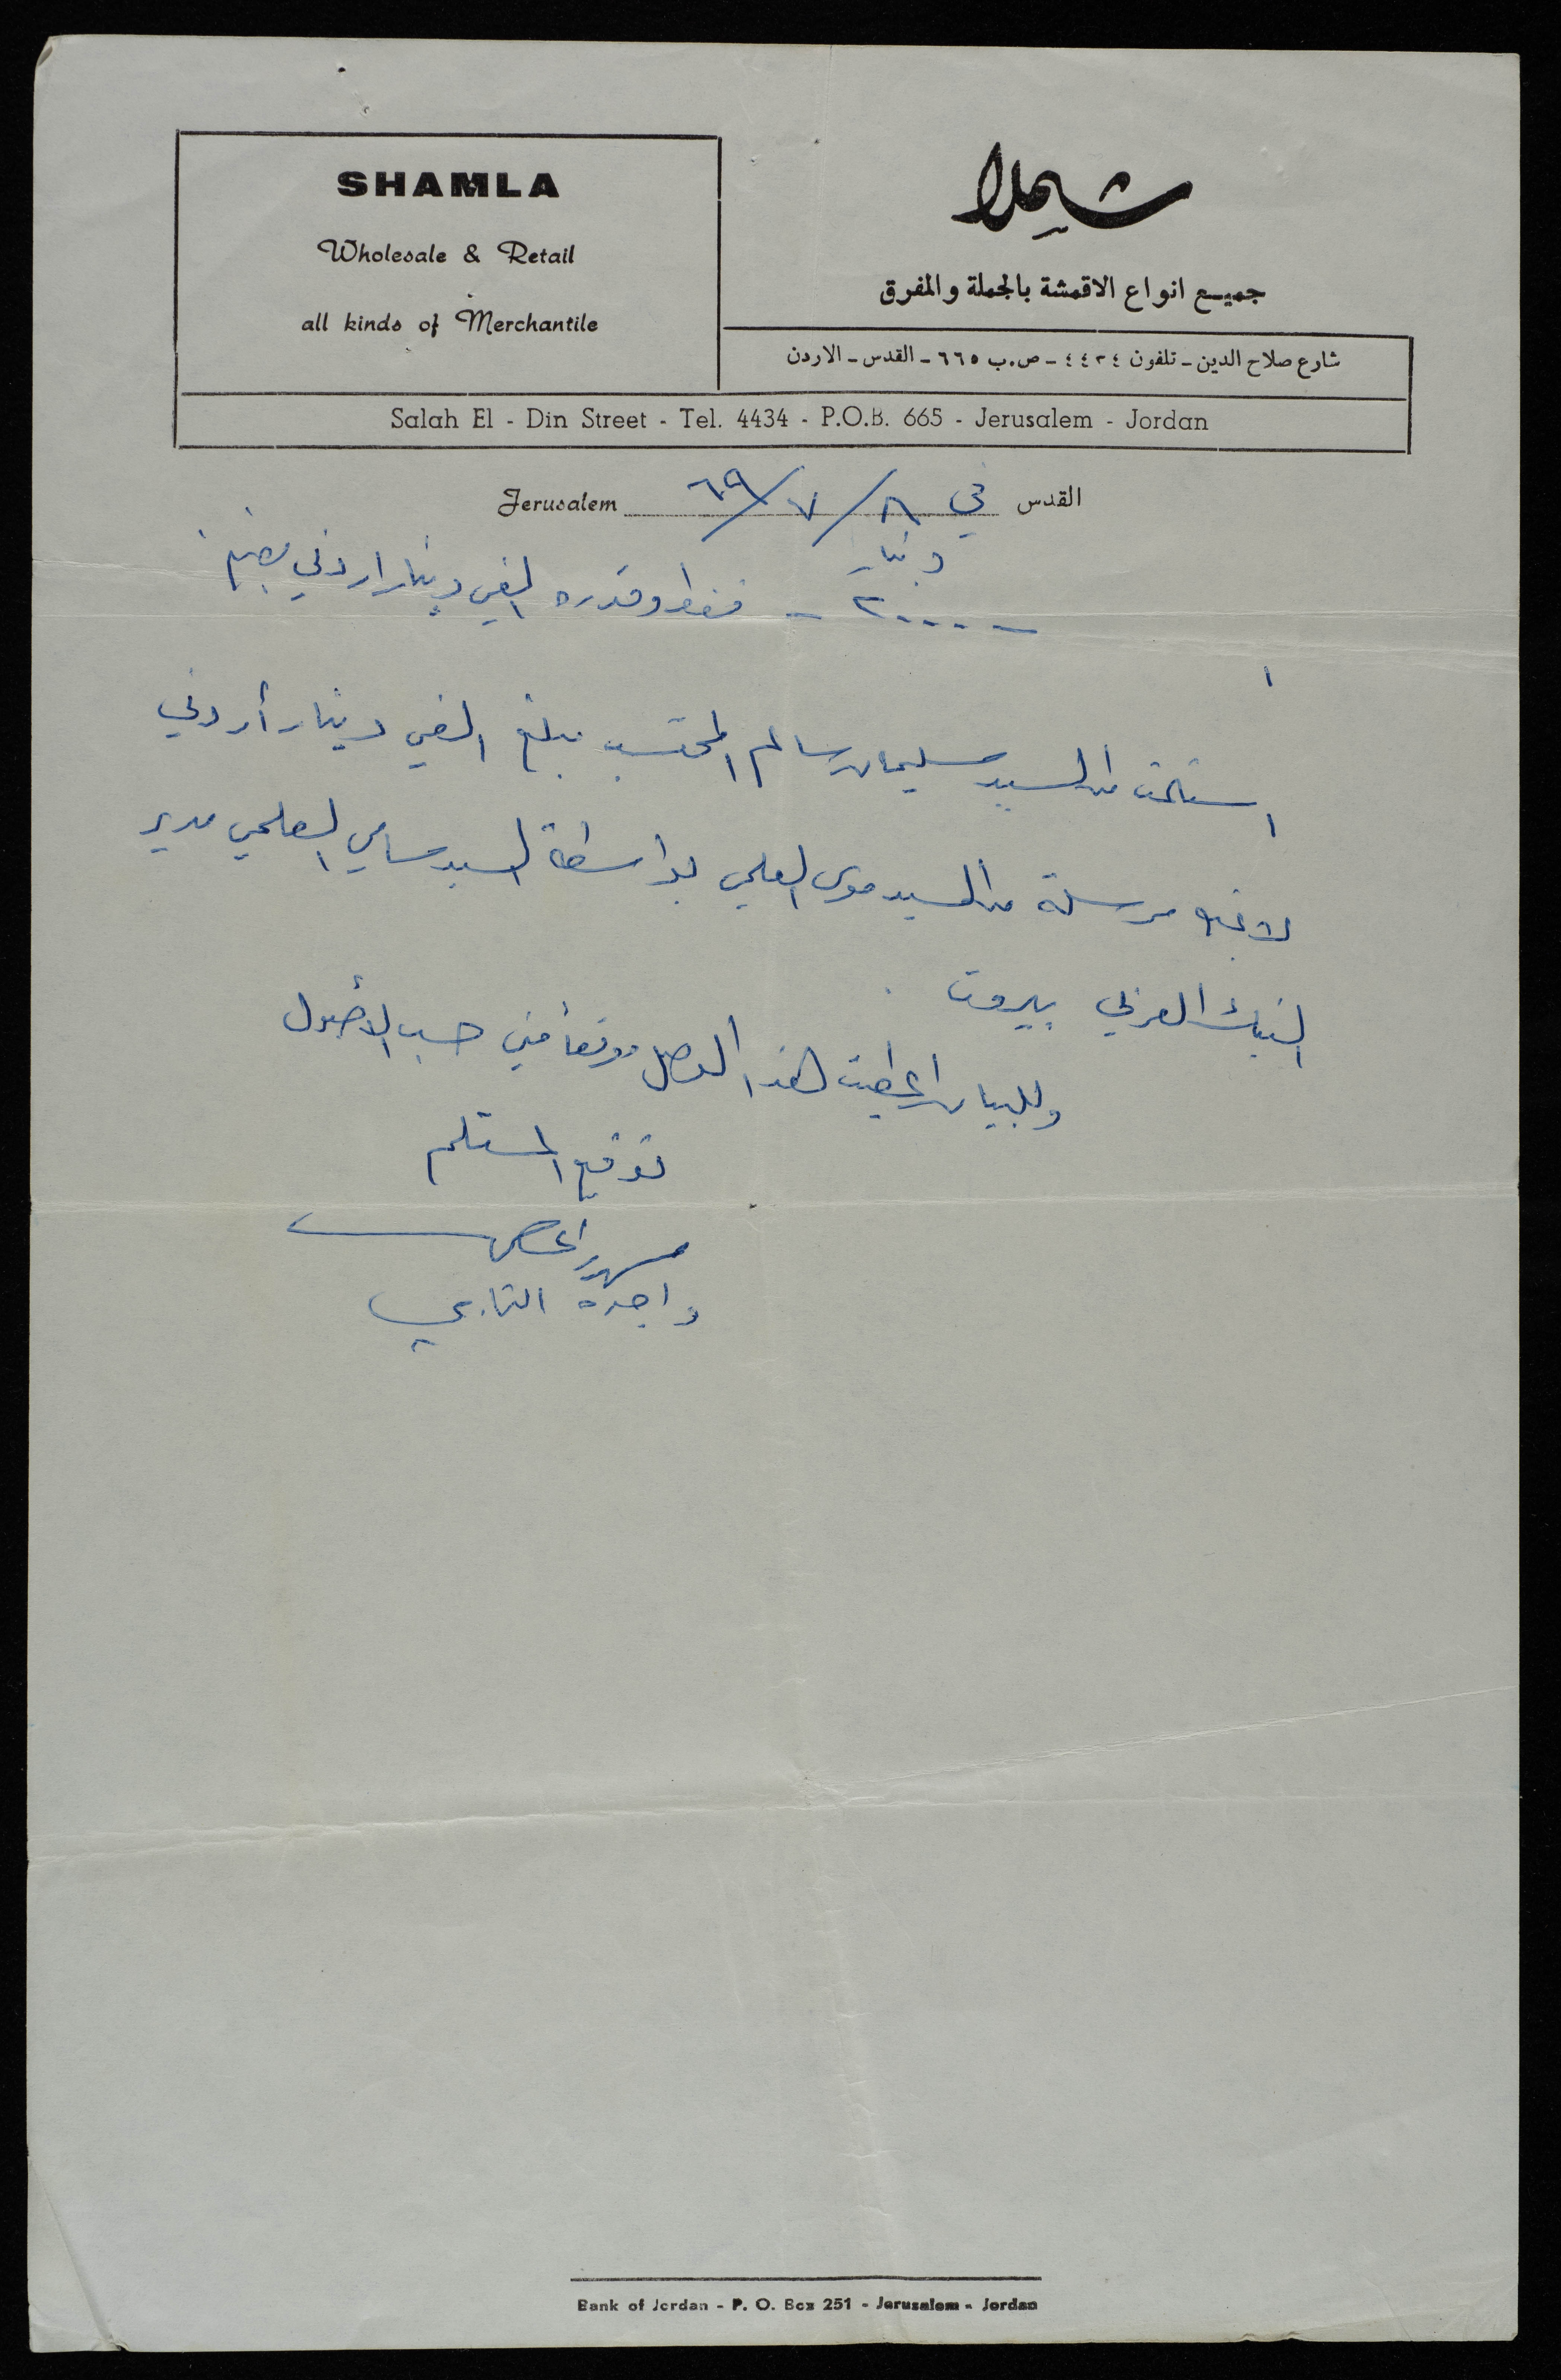 SHAMLA
Wholesale & Retail
all kinds of Merchantile
شملا
جميع انواع الاقمشة بالجملة والمفرق
شارع صلاح الدين ـ تلفون ٤٤٣٤ ـ ص.ب ٦٦٥ ـ القدس ـ الاردن
Salah El - Din Street - Tel. 4434 - P.O.B. 665 - Jerusalem - Jordan
القدس في ٨ / ٧ / ٦٩ Jerusalem
دينار
فقط وقدره الفي دينار اردني
استلمت من السيد سليمان سالم المحتسب مبلغ الفي دينار أردني
لا غير مرسلة من السيد موسى العلمي بواسطة السيد سامي العلمي مدير
البنك العربي بيروت .
وللبيان اعطيت هذا الوصل موقعاً مني حسب الأصول
توقيع المستلم
واجدة التاجي
Bank of Jordan - P. O. Box 251 - Jerusalem - Jordan